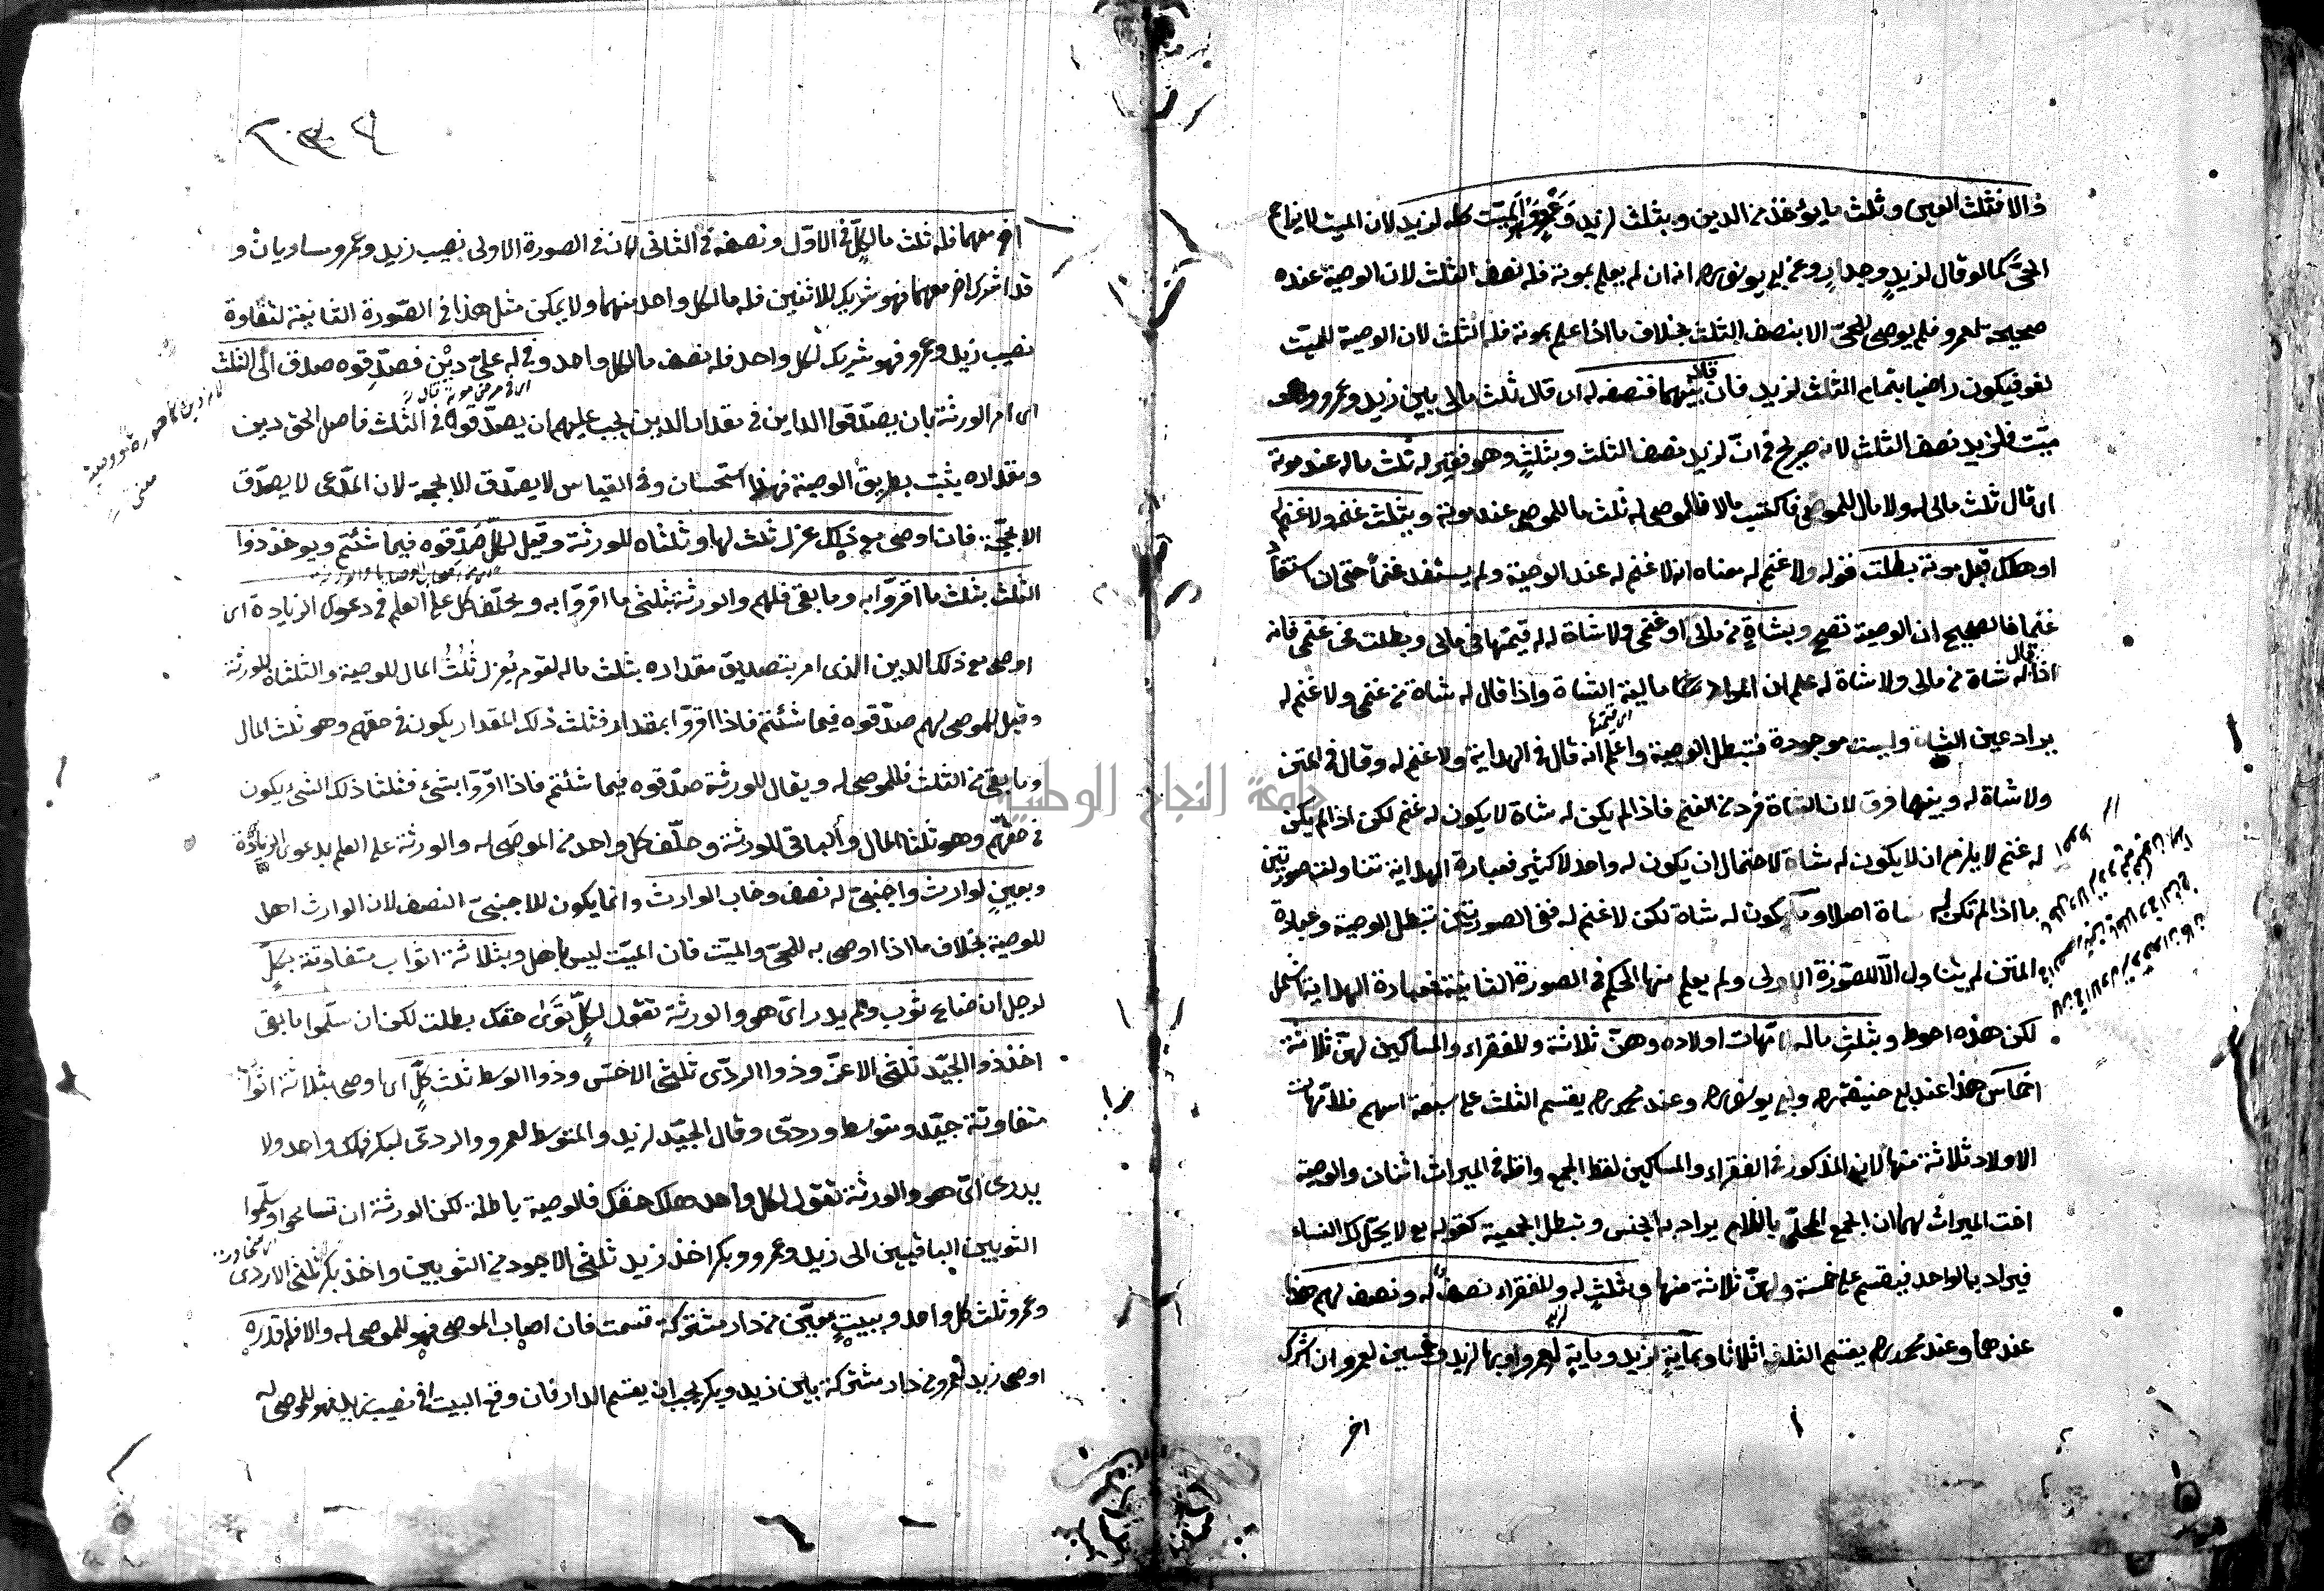 والا فثلث العين وثلث ما يؤخذ من الدين وبثلث لزيد وعمرو وهو الميت كله لزيد لان الميت لا يزاحم
الحى كما لو قال لزيد وجدار وعن ابى يوسف رح انه ان لم يعلم بموته فله نصف الثلث لان الوصية عنده
صحيحة لعمرو فلم يوص للحى الا بنصف الثلث بخلاف ما اذا علم بموته فله الثلث لان الوصية للميت
لغو فيكون راضيا بتمام الثلث لزيد فان قال بينهما فنصفه له اى قال ثلث مالى بين زيد وعمرو وهو
ميت فلزيد نصف الثلث لانه صريح فى ان لزيد نصف الثلث وبثلث وهو فقير له ثلث ماله عند موته
اى قال ثلث مالى له ولا مال للموصى فاكتسب مالا فللموصى له ثلث ما للموصى عند موته وبثلث غنمه ولا غنم له
او هلك قبل موته بطلت قوله ولا غنم له معناه انه لا غنم له عند الوصية ولم يستفد غنما حتى ان استفاد
غنما فالصحيح ان الوصية تصح وبشاة من مالى او غنمى ولا شاة له له قيمتها فى مالى وبطلت فى غنمى فانه
اذا قال له شاة من مالى ولا شاة له علم ان المراد مالية الشاة واذا قال له شاة من غنمى ولا غنم له
اى قيمتها
يراد عين الشاة وليست موجودة فتبطل الوصية واعلم انه قال فى الهداية ولا غنم له وقال فى المتن
ولا شاة له وبينهما فرق لان الشاة فرد من الغنم فاذا لم يكن له شاة لا يكون له غنم لكن اذا لم يكن
له غنم لا يلزم ان لا يكون له شاة لاحتمال ان يكون له واحد لا كثير فعبارة الهداية تناولت صورتين
ما اذا لم تكن له شاة اصلا وما يكون له شاة لكن لا غنم له ففى الصورتين تبطل الوصية وعبارة
المتن لم يتناول الا للصورة الاولى ولم يعلم منها الحكم فى الصورة الثانية فعبارة الهداية اشمل
لكن هذه احوط وبثلث ماله لامهات اولاده وهن ثلاثة وللفقراء والمساكين لهن ثلاثة
اخماس هذا عند ابى حنيفة رح وابى يوسف رح وعند محمد رح يقسم الثلث على سبعة اسهم فلامهات
الاولاد ثلاثة منها لان المذكور فى الفقراء والمساكين لفظ الجمع واقله فى الميراث اثنان والوصية
اخت الميراث لهما ان الجمع المحلى باللام يراد به الجنس وتبطل الجمعية كقوله تع لا يحل لك النساء
فيراد به الواحد فيقسم على خمسة ولهن ثلاثة منها وبثلث له وللفقراء نصف له ونصف لهم هذا
عندهما وعند محمد رح يقسم الثلث اثلاثا وبماية لزيد وماية لعمرو او بها لزيد وخمسين لعمرو ان اشرك
اخر
اخر معهما فله ثلث ما لكل فى الاول ونصفه فى الثانى لان فى الصورة الاولى نصيب زيد وعمرو مساويان و
قد اشرك اخر معهما فهو شريك للاثنين فله ما لكل واحد منهما ولا يمكن مثل هذا فى الصورة الثانية لتفاوة
نصيب زيد وعمرو فهو شريك لكل واحد فله نصف ما لكل واحد وفى له على دين فصدقوه صدق الى الثلث
اى امر الورثة بان يصدقوا الداين فى مقدار الدين يجب عليهم ان يصدقوه الى الثلث فاصل الحق دين
ومقداره يثبت بطريق الوصية فهذا استحسان وفى القياس لا يصدق الا بحجة لان المدعى لا يصدق
الا بحجة فان اوصى مع ذلك عزل ثلث لها وثلثاه للورثة وقيل لكل صدقوه فيما شئتم ويؤخذ ذوا
الثلث بثلث ما اقروا به وما بقى فلهم والورثة بثلثى ما اقروا به ويحلف كل على العلم فى دعوى الزيادة اى
اوصى مع ذلك الدين الذى امر بتصديق مقداره بثلث ماله لقوم يعزل ثلث المال للوصية والثلثاه للورثة
وقيل للموصى لهم صدقوه فيما شئتم فاذا اقروا بمقدار فثلث ذلك المقدار يكون فى حقهم وهو ثلث المال
وما بقى من الثلث فللموصى له ويقال للورثة صدقوه فيما شئتم فاذا اقروا بشئ فثلثا ذلك الشئ يكون
فى حقهم وهو ثلثا المال والباقى للورثة وحلف كل واحد من الموصى له والورثة على العلم بدعوى الزيادة
وبعين لوارث واجنبى له نصف وخاب الوارث وانما يكون للاجنبى النصف لان الوارث اهل
للوصية بخلاف ما اذا اوصى به للحى والميت فان الميت ليس باهل وبثلاثة اثواب متفاوتة بكل
لرجل ان ضاع ثوب ولم يدر اى هو والورثة تقول لكل توى حقك بطلت لكن ان سلموا ما بقى
اخذ ذو الجيد ثلثى الاعز وذوا الردى ثلثى الاخس وذوا الوسط ثلث كل اى اوصى بثلاثة اثواب
متفاوتة جيد ومتوسط وردى وقال الجيد لزيد والمتوسط لعمرو والردى لبكر فهلك واحد ولا
يدرى اى هو والورثة تقول لكل واحد هلك حقك فالوصية باطلة لكن الورثة ان تسامحوا وسلموا
الثوبين الباقيين الى زيد وعمرو وبكر اخذ زيد ثلثى الاجود من الثوبين واخذ بكر ثلثى الاردى
وعمرو ثلث كل واحد وببيت معين من دار مشتركة قسمت فان اصاب الموصى فهو للموصى له والا فله قدره
اوصى زيد لعمرو من دار مشتركة بين زيد وبكر يجب ان يقسم الدار فان وقع البيت فى نصيب زيد فهو للموصى له
جامعة النجاح الوطنية